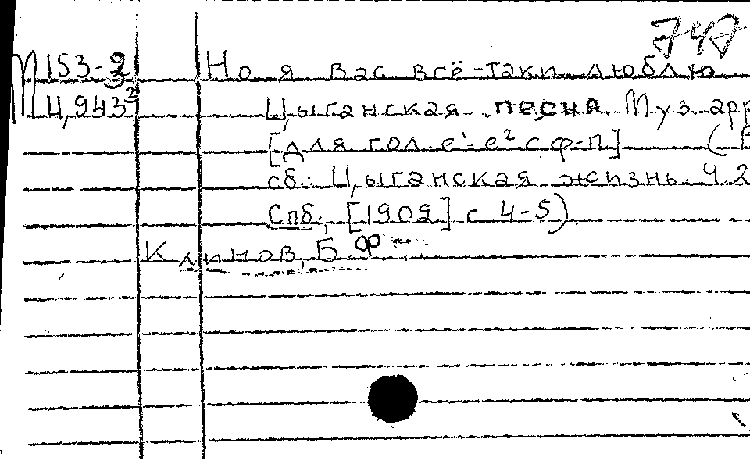 747
М153-2 Но я вас всё-таки люблю
Ц,943² Цыганская песня. Муз. арр
[для гол. e¹-e² с ф-п] (В
сб: Цыганская жизнь. Ч. 2
Спб, [1909] с 4-5)
Климов, Б. Ф